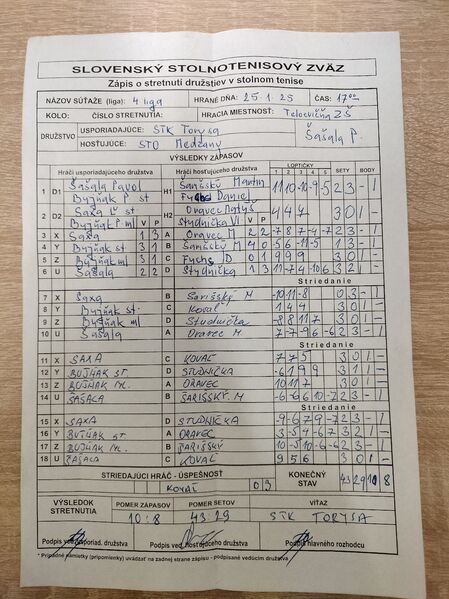 SLOVENSKÝ STOLNOTENISOVÝ ZVÄZ
Zápis o stretnutí družstiev v stolnom tenise
NÁZOV SÚŤAŽE (liga): 4 liga HRANÉ DŇA: 25.1.25 ČAS: 17 00
KOLO: ČÍSLO STRETNUTIA: HRACIA MIESTNOSŤ: Telocvičňa ZŠ
DRUŽSTVO USPORIADAJÚCE: STK Torysa Šašala P.
HOSŤUJÚCE: STO Medzany
VÝSLEDKY ZÁPASOV
Hráči usporiadajúceho družstva Hráči hosťujúceho družstva LOPTIČKY SETY BODY
1 2 3 4 5
1 D1 Šašala Pavol H1 Šarišský Martin 11 10 -10 -9 -5 2 3 - 1
Bujňák st Fuchs Daniel
2 D2 Saxa Ľ st H2 Oravec Matúš 4 4 7 3 0 1 -
Bujňák P ml Studnička Vl
V P V P
3 X Saxa 1 3 A Oravec M 2 2 -7 8 -7 4 -7 2 3 - 1
4 Y Bujňák st 3 1 B Šarišský M 4 0 5 6 -11 -5 1 3 - 1
5 Z Bujňák ml 3 1 C Fuchs D 0 1 9 9 9 3 0 1 -
6 U Šašala 2 2 D Studnička 1 3 11 -7 4 10 6 3 2 1 -
Striedanie
7 X Saxa B Šarišský M -10 -11 -8 0 3 - 1
8 Y Bujňák st. C Kovaľ 1 4 4 3 0 1 -
9 Z Bujňák ml D Studnička -8 8 11 7 3 1 -
10 U Šašala A Oravec M. 7 -7 9 -6 -6 2 3 - 1
Striedanie
11 X SAXA C KOVAĽ 7 7 5 3 0 1 -
12 Y BUJŇÁK ST. D STUDNIČKA -6 1 9 9 3 1 1 -
13 Z BUJŇÁK ML. A ORAVEC 10 11 7 3 0 1 -
14 U ŠAŠALA B ŠARIŠSKÝ M.
Striedanie
15 X SAXA D STUDNIČKA -9 -6 7 9 -7 2 3 - 1
16 Y BUJŇÁK ST A ORAVEC 3 -5 4 -6 7 3 2 1 -
17 Z BUJŇÁK ML. B ŠARIŠSKÝ 10 -5 10 -6 -6 2 3 - 1
18 U ŠAŠALA C KOVAĽ 9 5 6 3 0 1 -
STRIEDAJÚCI HRÁČ - ÚSPEŠNOSŤ KONEČNÝ STAV 43 29 10 8
KOVAĽ 0 3
VÝSLEDOK STRETNUTIA POMER ZÁPASOV POMER SETOV VÍŤAZ
10:8 43:29 STK TORYSA
Podpis ved. usporiad. družstva Podpis ved. hosťujúceho družstva Podpis hlavného rozhodcu
* Prípadné námietky (pripomienky) uvádzať na zadnej strane zápisu - podpísané vedúcim družstva